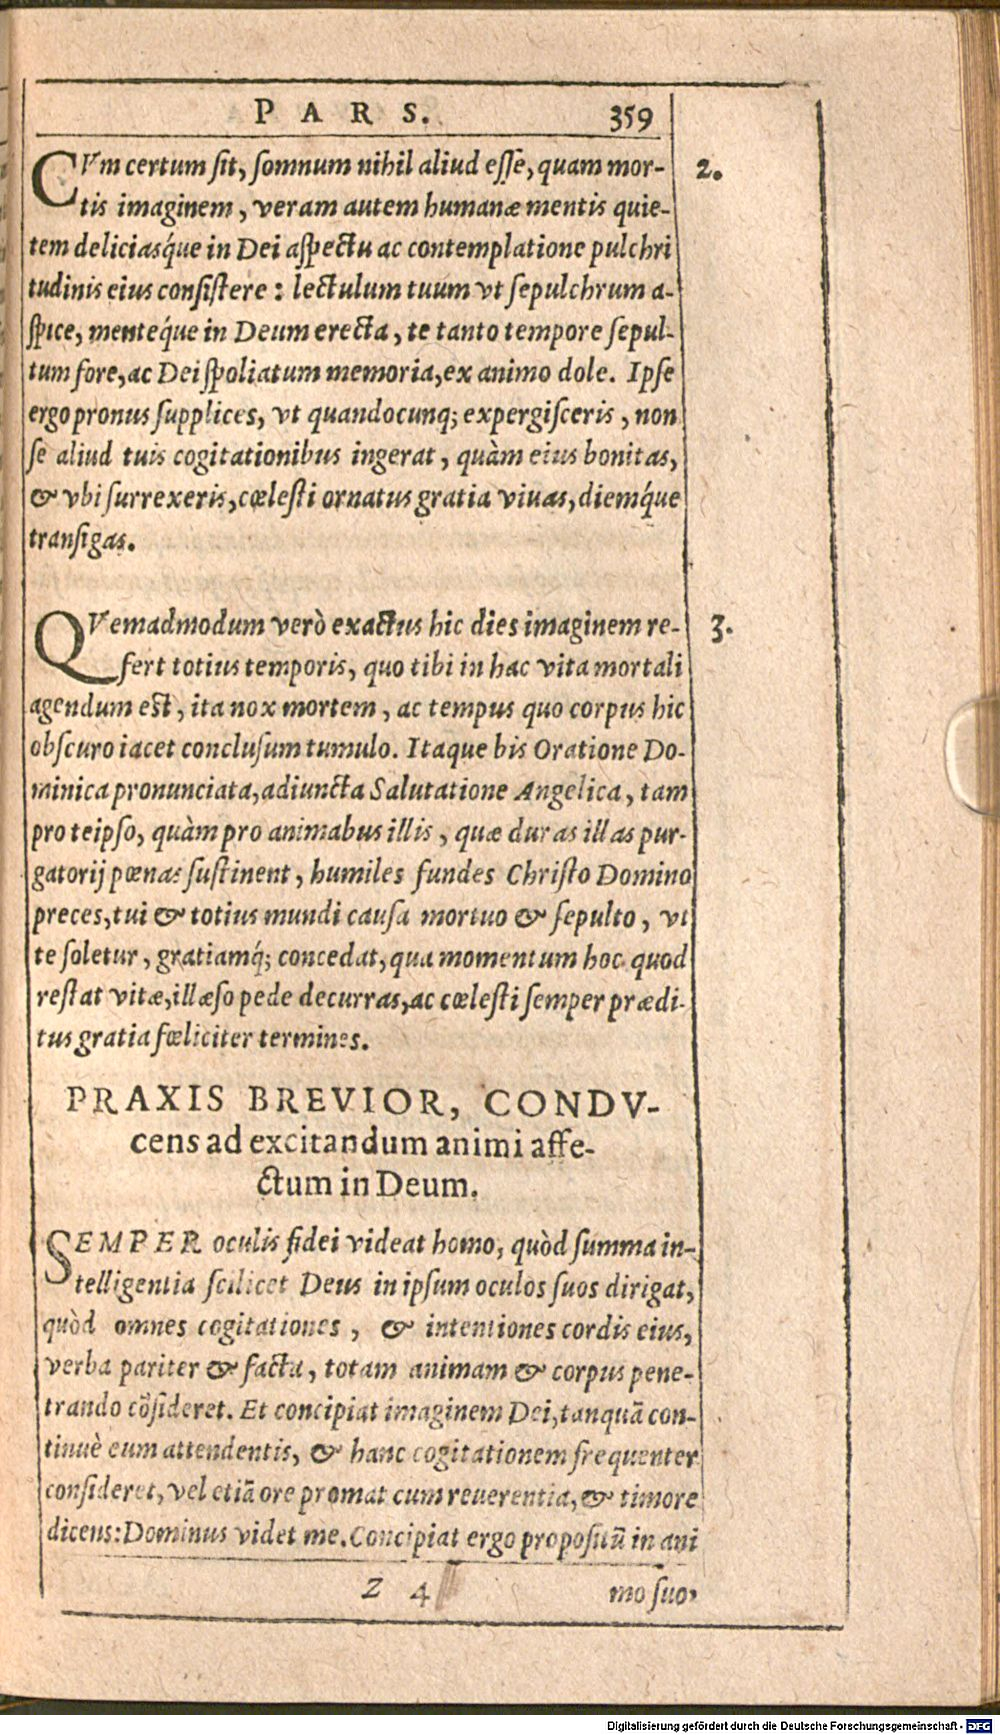 PARS. 359
CVm certum sit, somnum nihil aliud esse, quam mor- 2.
tis imaginem, veram autem humanæ mentis quie-
tem deliciasq́ue in Dei aspectu ac contemplatione pulchri
tudinis eius consistere: lectulum tuum vt sepulchrum a-
spice, menteq́ue in Deum erecta, te tanto tempore sepul-
tum fore, ac Dei spoliatum memoria, ex animo dole. Ipse
ergo pronus supplices, vt quandocunq; expergisceris, non
se aliud tuis cogitationibus ingerat, quàm eius bonitas,
& vbi surrexeris, cœlesti ornatus gratia viuas, diemq́ue
transigas.
QVemadmodum verò exactus hic dies imaginem re- 3.
fert totius temporis, quo tibi in hac vita mortali
agendum est, ita nox mortem, ac tempus quo corpus hic
obscuro iacet conclusum tumulo. Itaque bis Oratione Do-
minica pronunciata, adiuncta Salutatione Angelica, tam
pro teipso, quàm pro animabus illis, quæ duras illas pur-
gatorij pœnas sustinent, humiles fundes Christo Domino
preces, tui & totius mundi causa mortuo & sepulto, vt
te soletur, gratiamq́; concedat, qua momentum hoc quod
restat vitæ, illæso pede decurras, ac cœlesti semper prædi-
tus gratia fœliciter termines.
PRAXIS BREVIOR, CONDV-
cens ad excitandum animi affe-
ctum in Deum.
SEMPER oculis fidei videat homo, quòd summa in-
telligentia scilicet Deus in ipsum oculos suos dirigat,
quòd omnes cogitationes, & intentiones cordis eius,
verba pariter & facta, totam animam & corpus pene-
trando cõsideret. Et concipiat imaginem Dei, tanquã con-
tinuè eum attendentis, & hanc cogitationem frequenter
consideret, vel etiã ore promat cum reuerentia, & timore
dicens: Dominus videt me. Concipiat ergo propositũ in ani
Z 4 mo suo,
Digitalisierung gefördert durch die Deutsche Forschungsgemeinschaft - DFG